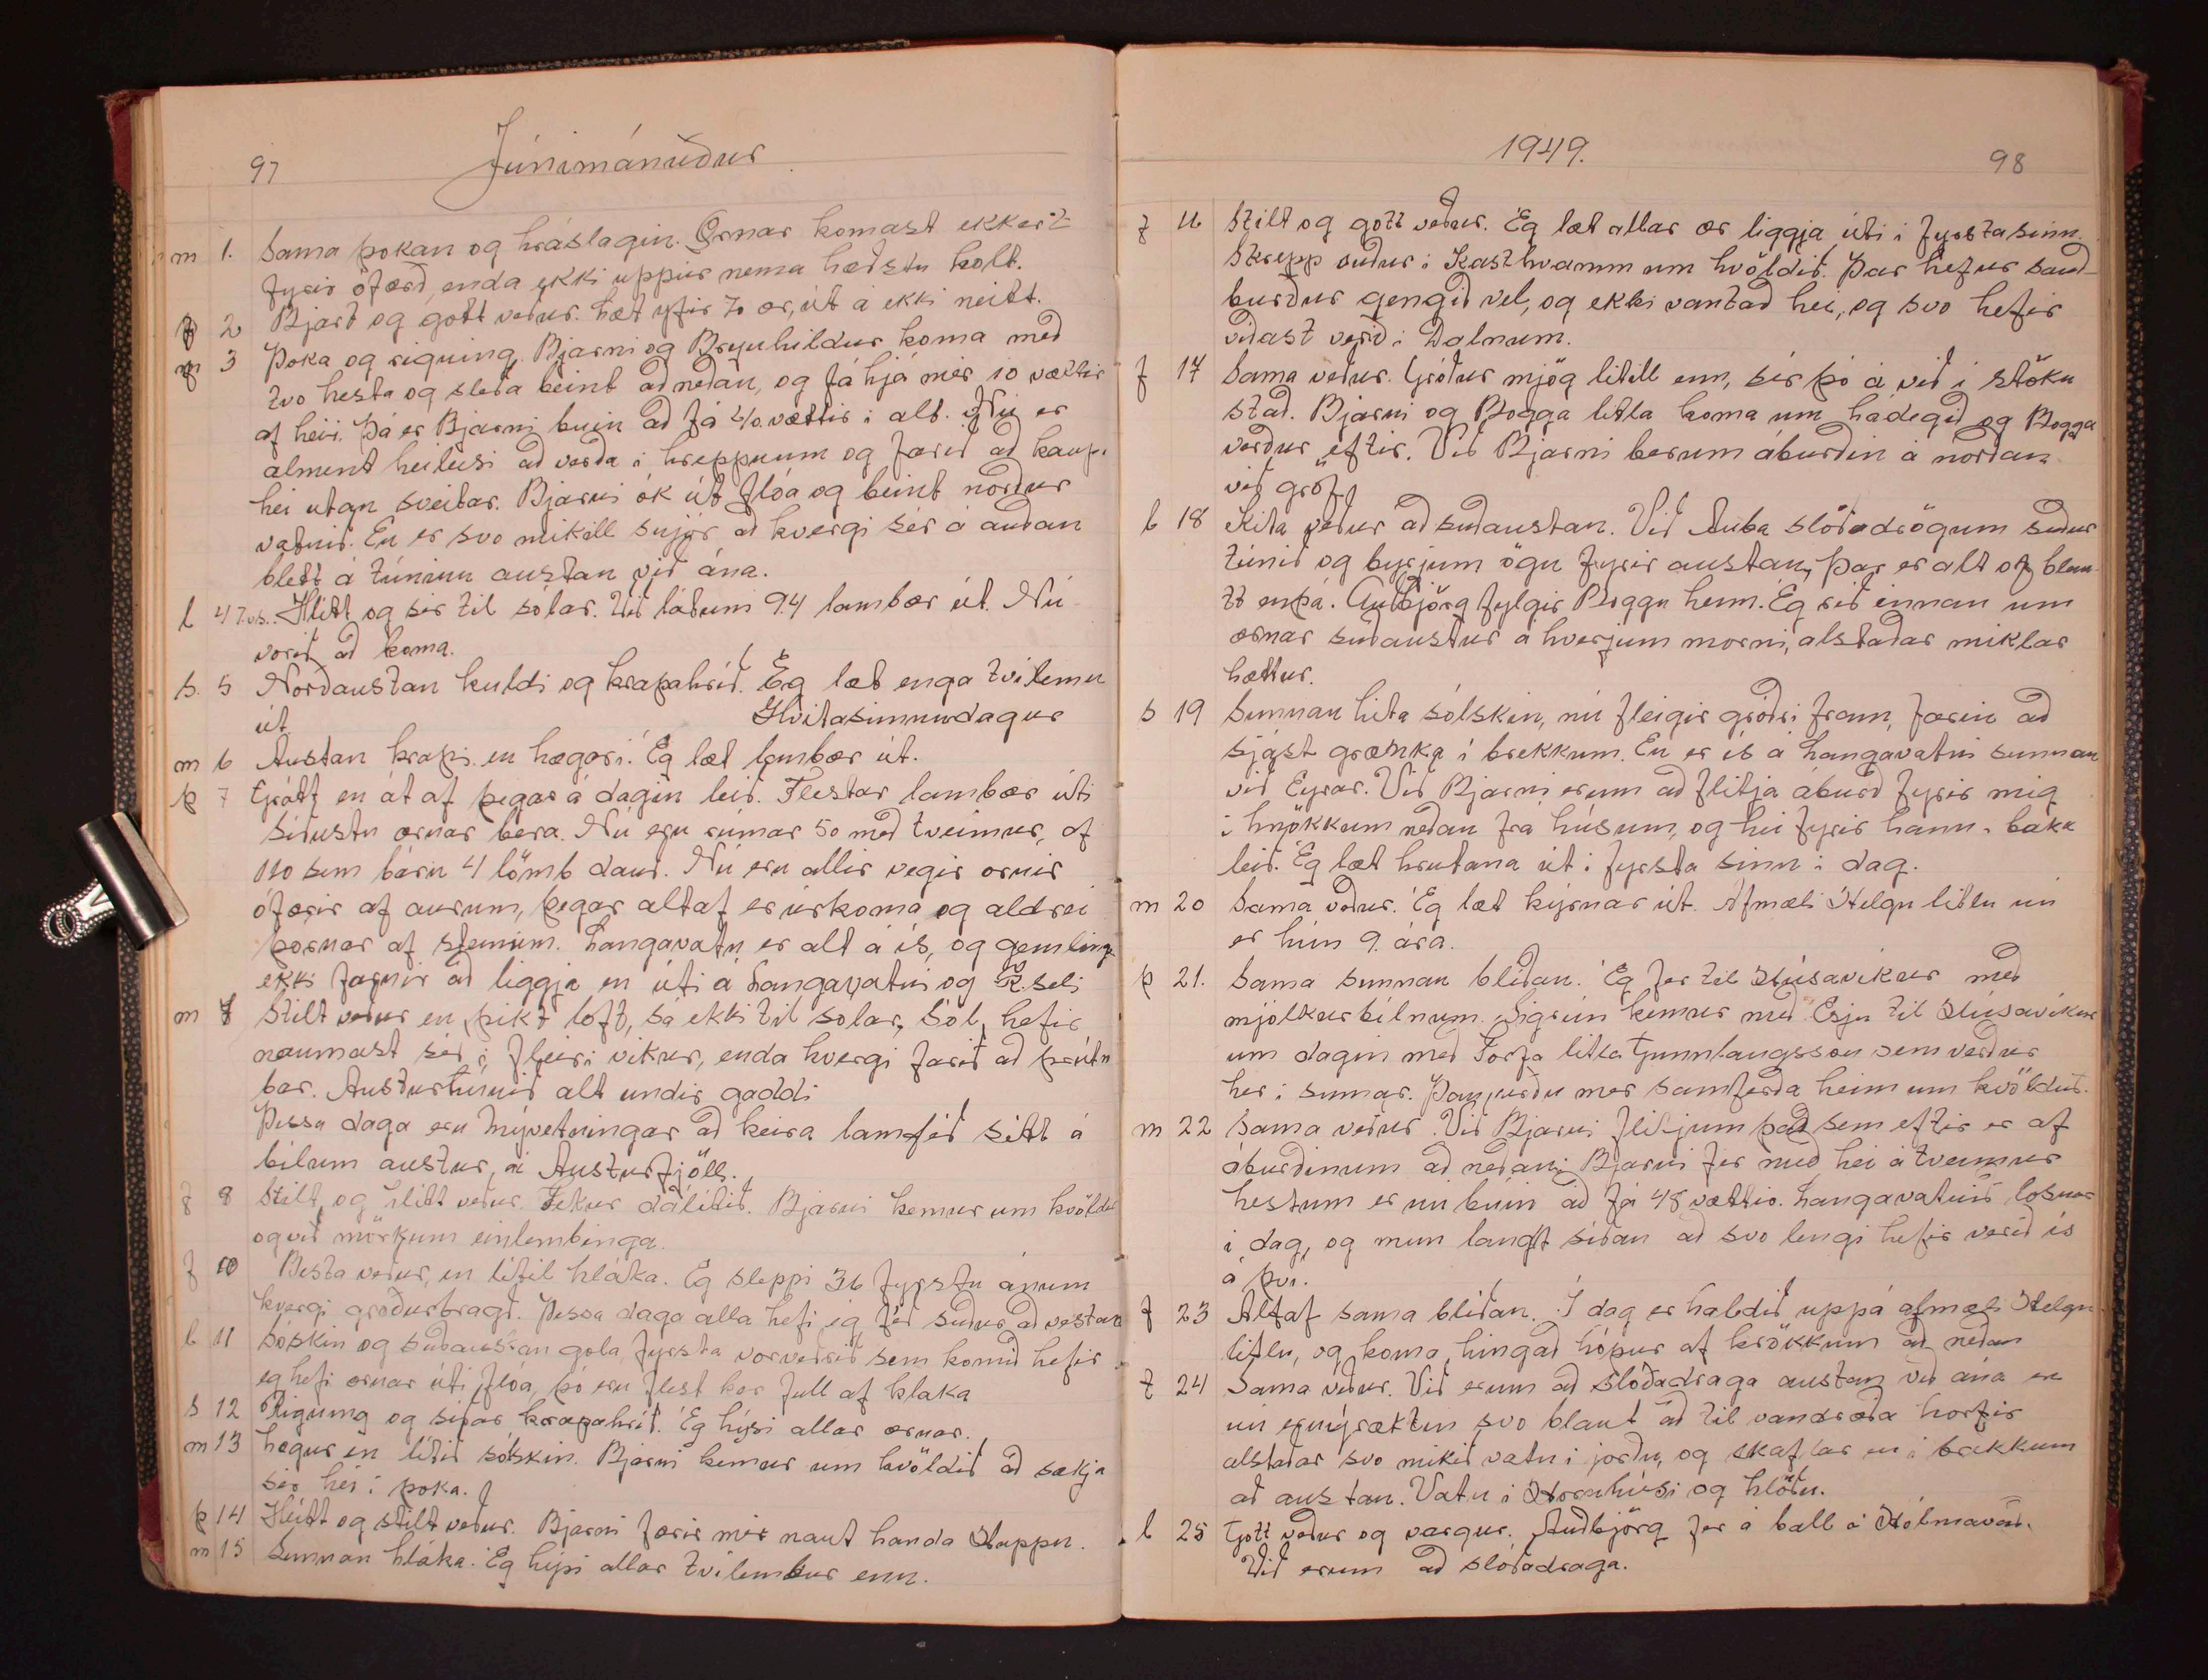 97
Júnímánuður
m 1. Sama þokan og hráslagin. Ærnar komast ekkert
fyrir ófærð, enda ekki uppúr nema hæðstu holt.
f 2 Bjart og gott veður. Læt yfir 70 ær, út á ekki neitt.
f 3 Þoka og rigning. Bjarni og Brynhildur koma með
tvo hesta og sleða beint að neðan, og fá hjá mér 10 vættir
af heii. Þá er Bjarni buin að fá 40 vættir i alt. Nú er
alment heileisi að verða i hreppnum og farið að kaupa
hei utan sveitar. Bjarni ók út flóa og beint norður
vatnið. En er svo mikill snjór að hvergi sér á auðan
blett á túninu austan við ána.
l 4 7.v.s. Hlítt og sér til sólar. Við látum 94 lambær út. Nú
vorið að koma.
s. 5 Norðaustan kuldi og krapahríð. Eg læt enga tvílemu
út Hvítasunnudagur
m 6 Austan krapi en hægari. Eg læt lambær út.
þ 7 Grátt en át af þegar á dagin leið. Flestar lambær úti
síðustu ærnar bera. Nú eru rúmar 50 með tveimur, af
110 sem báru 4 lömb dauð. Nú eru allir vegir ornir
ófærir af aurum, þegar altaf er úrkoma og aldrei
þornar af steinum. Langavatn er alt á ís, og gemling
ekki farnir að liggja en úti á Langavatni og K. seli
m 8 Stilt veður en þikt loft, sá ekki til sólar, Sól hefir
naumast séð i fleiri vikur, enda hvergi farið að þrútn
bar. Austurtúnið alt undir gaddi
Þessa daga eru Mývetningar að keira lamféð sitt á
bílum austur á Austurfjöll.
f 9 Stilt og hlítt veður. Tekur dálítið. Bjarni kemur um kvöldið
og við mörkum einlembinga.
f 10 Besta veður, en lítil hláka. Eg sleppi 36 fyrstu ánum
hvergi gróðurbragð. Þessa daga alla hefi eg féð suður að vestan
l 11 Sóskin og suðaustan gola, fyrsta vorveðrið sem komið hefir
eg hefi ærnar úti flóa, þó eru flest kor full af klaka
s 12 Rigning og síðar krapahríð. Eg hýsi allar ærnar.
m 13 hægur en lítið sólskin. Bjarni kemur um kvöldið að sækja
sér hei i poka.
þ 14 Hlítt og stilt veður. Bjarni færir mér naut handa Huppu.
m 15 Sunnan hláka. Eg hýsi allar tvílembur enn.
1949.
98
f 16 Stilt og gott veður. Eg læt allar ær liggja úti i fyrsta sinn.
Skrepp suður i Kasthvamm um kvöldið. Þar hefur sauð-
burður gengið vel, og ekki vantað hei, og svo hefir
víðast verið i Dalnum.
f 17 Sama veður. Gróður mjög lítill enn, sér þó á við i stöku
stað. Bjarni og Bogga litla koma um hádegið og Bogga
verður eftir. Við Bjarni berum áburðin á norðan
við gröf
l 18 Hita veður að suðaustan. Við Auba slóðadrögum suður
túnið og byrjum ögn fyrir austan, þar er alt of blau-
tt enþá. Auðbjörg fylgir Boggu heim. Eg rið innan um
ærnar suðaustur á hverjum morni, alstaðar miklar
hættur.
s 19 Sunnan hita sólskin, nú fleigir gróðri fram, farin að
sjást grænka i brekkum. En er ís á Langavatni sunnan
við Eyrar. Við Bjarni erum að flitja áburð fyrir mig
i hnjökkum neðan frá húsum, og hei fyrir hann. baka
leið. Eg læt hrutana út i fyrsta sinn i dag.
m 20 Sama veður. Eg læt kýrnar út. Afmæli Helgu litlu nú
er hún 9. ára.
þ 21. Sama sunnan blíðan. Eg fer til Húsavíkur með
mjólkurbílnum. Sigrún kemur með Esju til Húsavíkur
um dagin með Torfa litla Gunnlaugsson sem verður
her i sumar. Þau urðu mer samferða heim um kvöldið.
m 22 Sama veður. Við Bjarni flitjum það sem eftir er af
áburðinum að neðan. Bjarni fer með hei á tveimur
hestum er nú búin að fá 48 vættir. Langavatnið losnar
i dag, og mun langt síðan að svo lengi hefir verið ís
á því.
f 23 Altaf sama blíðan. Í dag er haldið uppá afmæli Helgu
litlu, og koma hingað hópur af krökkum að neðan
f 24 Sama veður. Við erum að slóðadraga austan við ána en
nú er nýræktin svo blaut að til vandræða horfir
alstaðar svo mikið vatn i jörðu, og skaflar en i brekkum
að austan. Vatn i Hornhúsi og hlöðu.
l 25 Gott veður og vargur. Auðbjörg fer á ball á Hólmavað.
Við erum að slóðadraga.